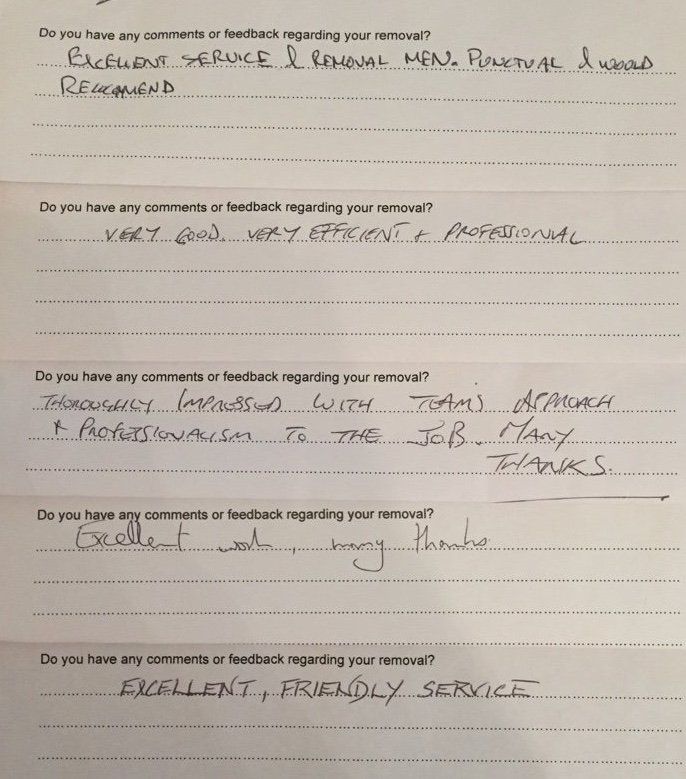 Do you have any comments or feedback regarding your removal?
EXCELLENT SERVICE & REMOVAL MEN. PUNCTUAL & WOULD
RECCOMEND
Do you have any comments or feedback regarding your removal?
VERY GOOD. VERY EFFICIENT + PROFESSIONAL
Do you have any comments or feedback regarding your removal?
THOROUGHLY IMPRESSED WITH TEAMS APPROACH
& PROFESSIONALISM TO THE JOB. MANY
THANKS.
Do you have any comments or feedback regarding your removal?
Excellent work, many thanks
Do you have any comments or feedback regarding your removal?
EXCELLENT, FRIENDLY SERVICE